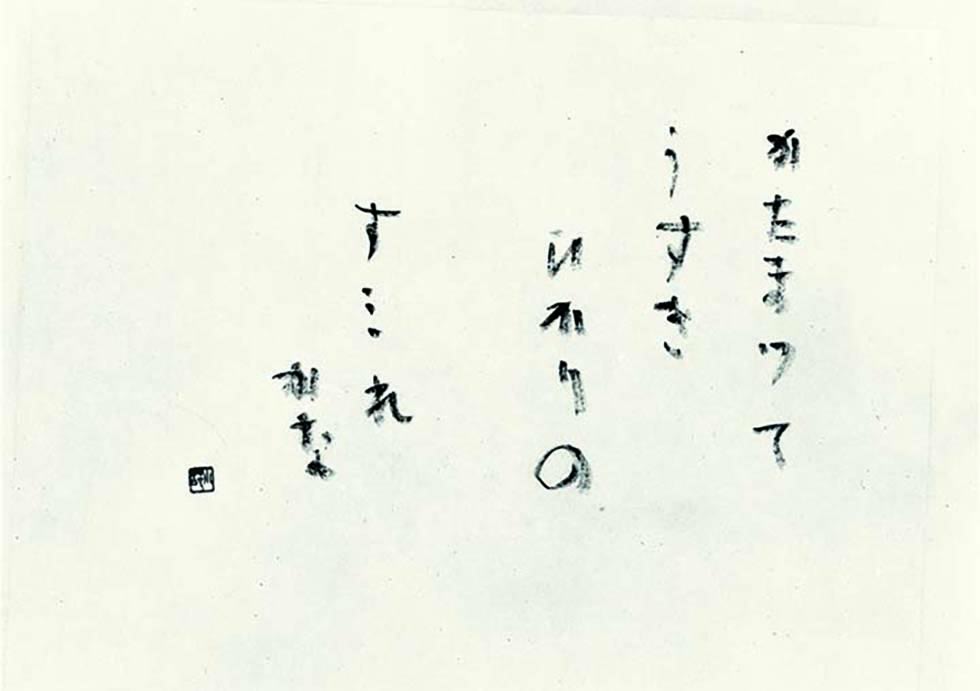 かたまつて
うすき
ひかりの
すみれ
かな